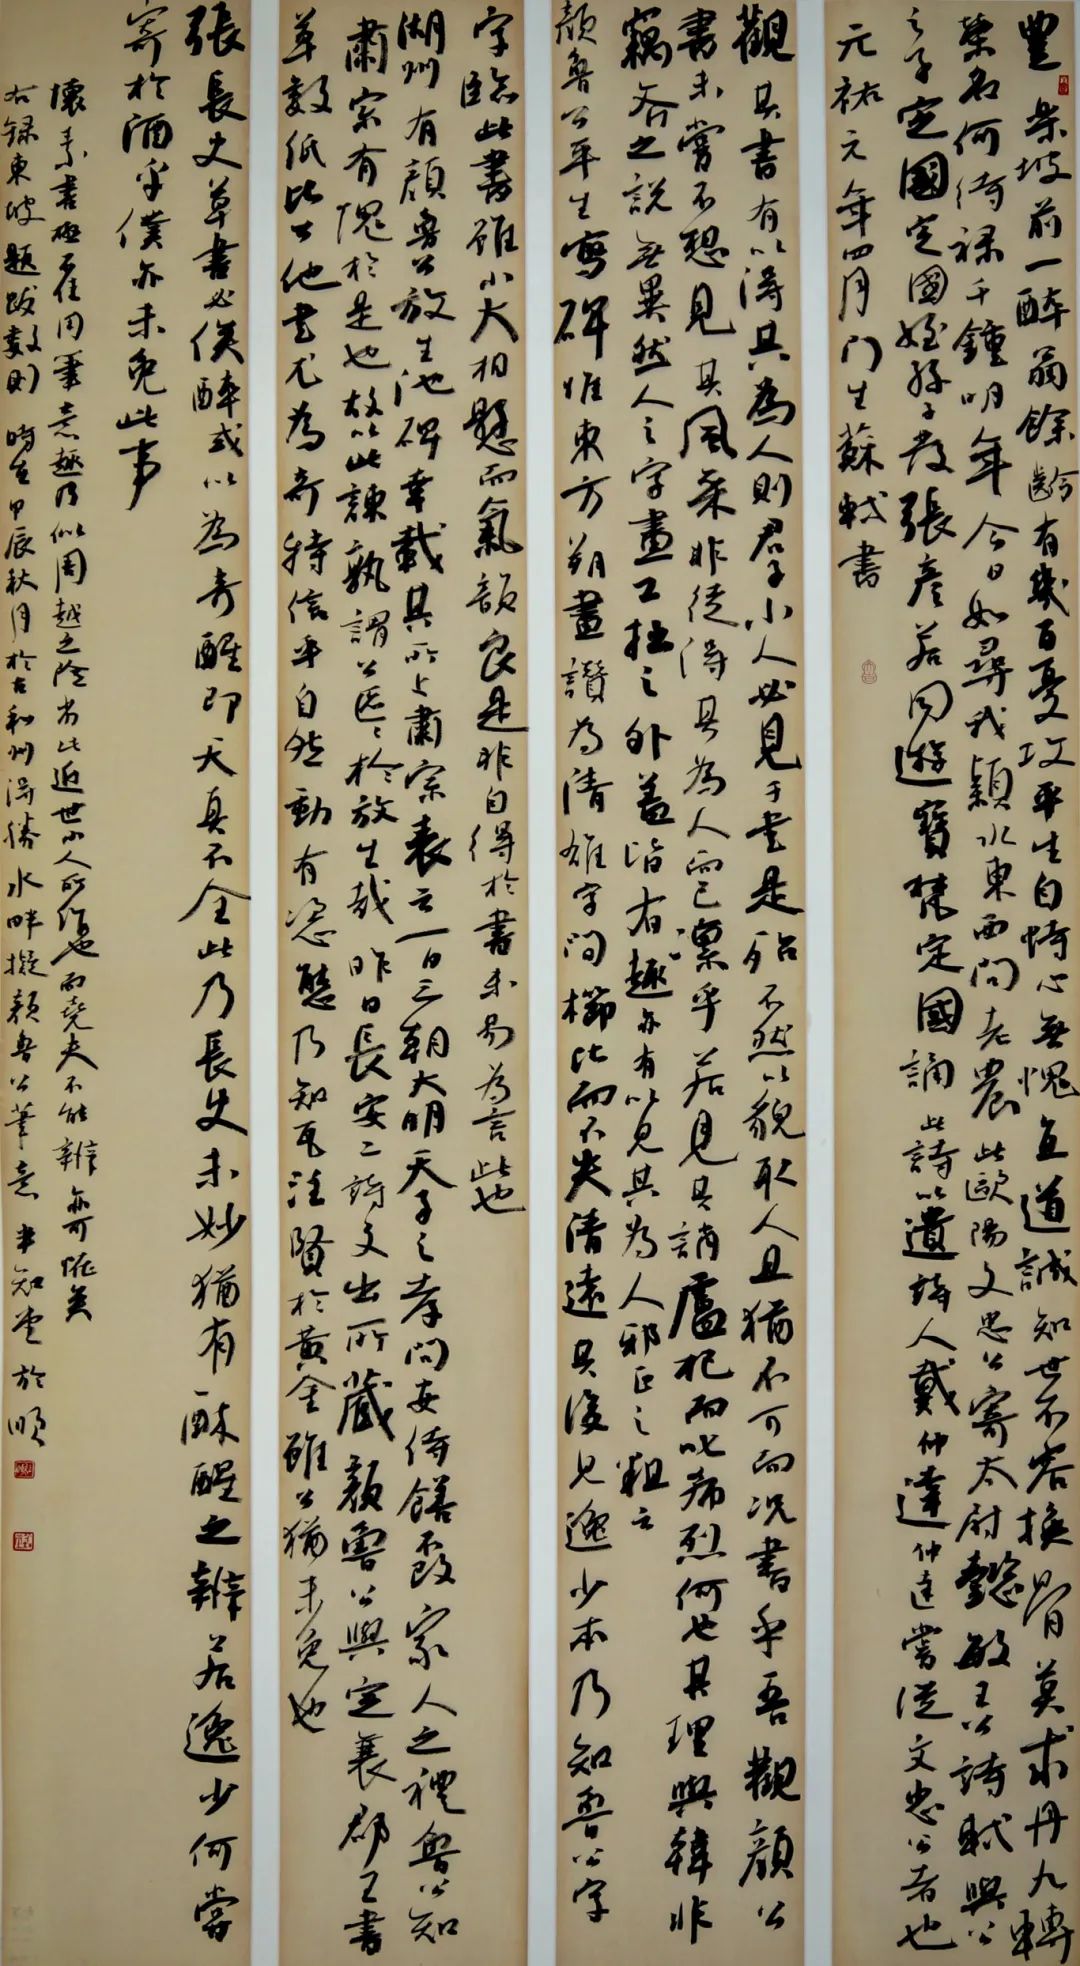 豐樂坡前一醉翁餘齡有幾百憂攻平生自恃心無愧直道誠知世不容換骨莫求丹九轉
榮名何待祿千鍾明年今日如尋我潁水東西問老農此歐陽文忠公寄太尉懿敏王公詩軾與公
之子定國定國姪孫子發張彥若同遊寶梵定國誦此詩以遺詩人戴仲達仲達嘗從文忠公者也
元祐元年四月門生蘇軾書
觀其書有以得其為人則君子小人必見于書是殆不然以貌取人且猶不可而況書乎吾觀顏公
書未嘗不想見其風采非徒得其為人而已凜乎若見其誚盧杞而叱希烈何也其理與韓非
竊斧之說無異然人之字畫工拙之外蓋皆有趣亦有以見其為人邪正之粗云
顏魯公平生寫碑惟東方朔畫讚為清雄字間櫛比而不失清遠其後見逸少本乃知魯公字
字臨此書雖小大相懸而氣韻良是非自得於書未易為言此也
湖州有顏魯公放生池碑幸載其所上肅宗表云一日三朝大明天子之孝問安侍膳不改家人之禮魯公知
肅宗有愧於是也故以此諫孰謂公區區於放生哉昨日長安二詩文出所藏顏魯公與定襄郡王書
草數紙比公他書尤為奇特信乎自然動有姿態乃知瓦注賢於黃金雖公猶未免也
張長史草書必俟醉或以為奇醒即天真不全此乃長史未妙猶有醉醒之辨若逸少何嘗
寄於酒乎僕亦未免此事
懷素書極不佳用筆意趣乃似周越之險劣此近世小人所作也而堯夫不能辨亦可怪矣
右錄東坡題跋數則時在甲辰秋月於古和州得勝水畔擬顏魯公筆意